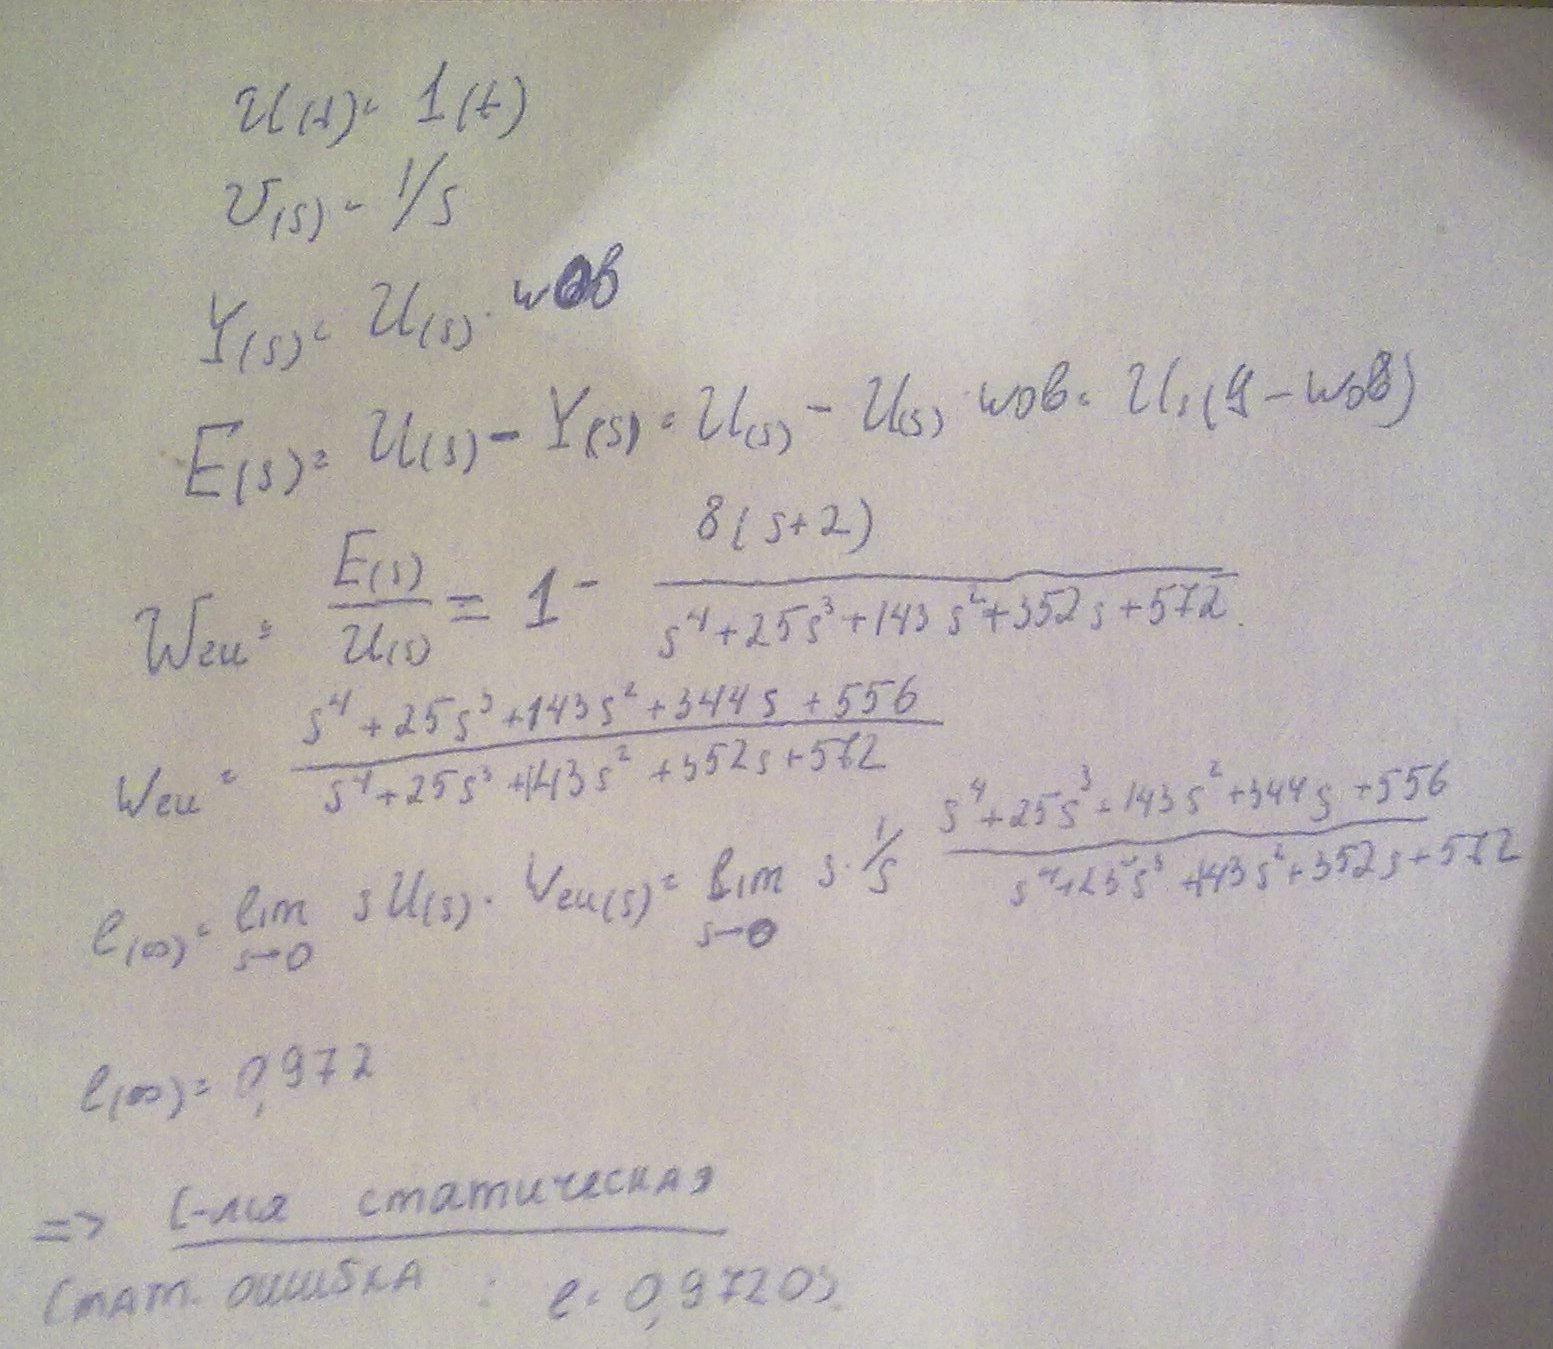 u(t) = 1(t)
U(s) = 1/s
Y(s) = U(s) · wов
E(s) = U(s) - Y(s) = U(s) - U(s) wов = Us(1 - wов)
Weu = E(s)/U(s) = 1 - 8(s+2)/(s^4+25s^3+143s^2+352s+572).
Weu = (s^4+25s^3+143s^2+344s+556)/(s^4+25s^3+143s^2+352s+572)
e(∞) = lim s→0 sU(s) · Weu(s) = lim s→0 s · 1/s (s^4+25s^3+143s^2+344s+556)/(s^4+25s^3+143s^2+352s+572)
e(∞) = 0,972
=> С-ма статическая
Стат. ошибка : e = 0,97203.